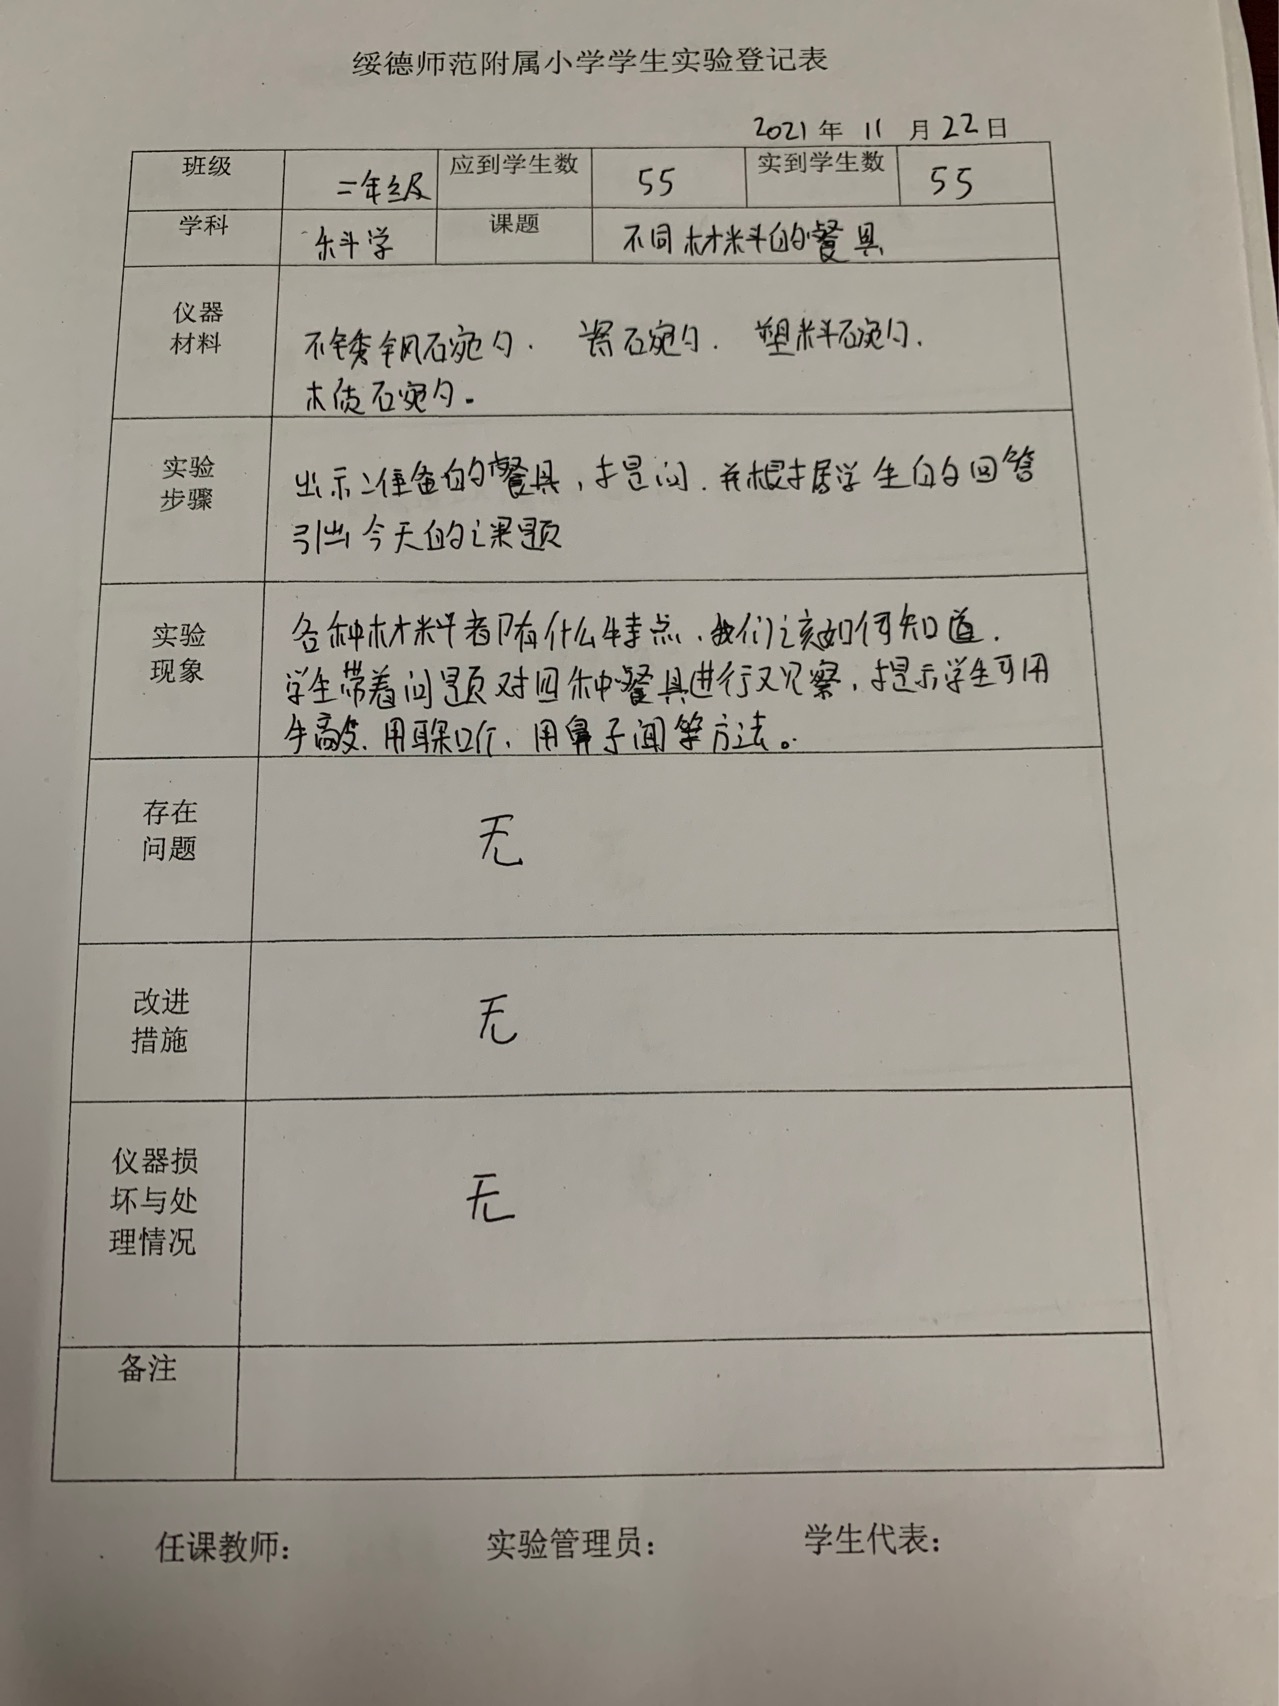 绥德师范附属小学学生实验登记表
2021年 11 月22日
班级 二年级 应到学生数 55 实到学生数 55
学科 科学 课题 不同材料的餐具
仪器
材料
不锈钢碗勺. 瓷碗勺. 塑料碗勺.
木质碗勺。
实验
步骤
出示准备的餐具,提问.并根据学生的回答
引出今天的课题
实验
现象
各种材料都有什么特点、我们该如何知道.
学生带着问题对四种餐具进行观察,提示学生可用
手、用耳听、用鼻子闻等方法。
存在
问题
无
改进
措施
无
仪器损
坏与处
理情况
无
备注
任课教师: 实验管理员: 学生代表: